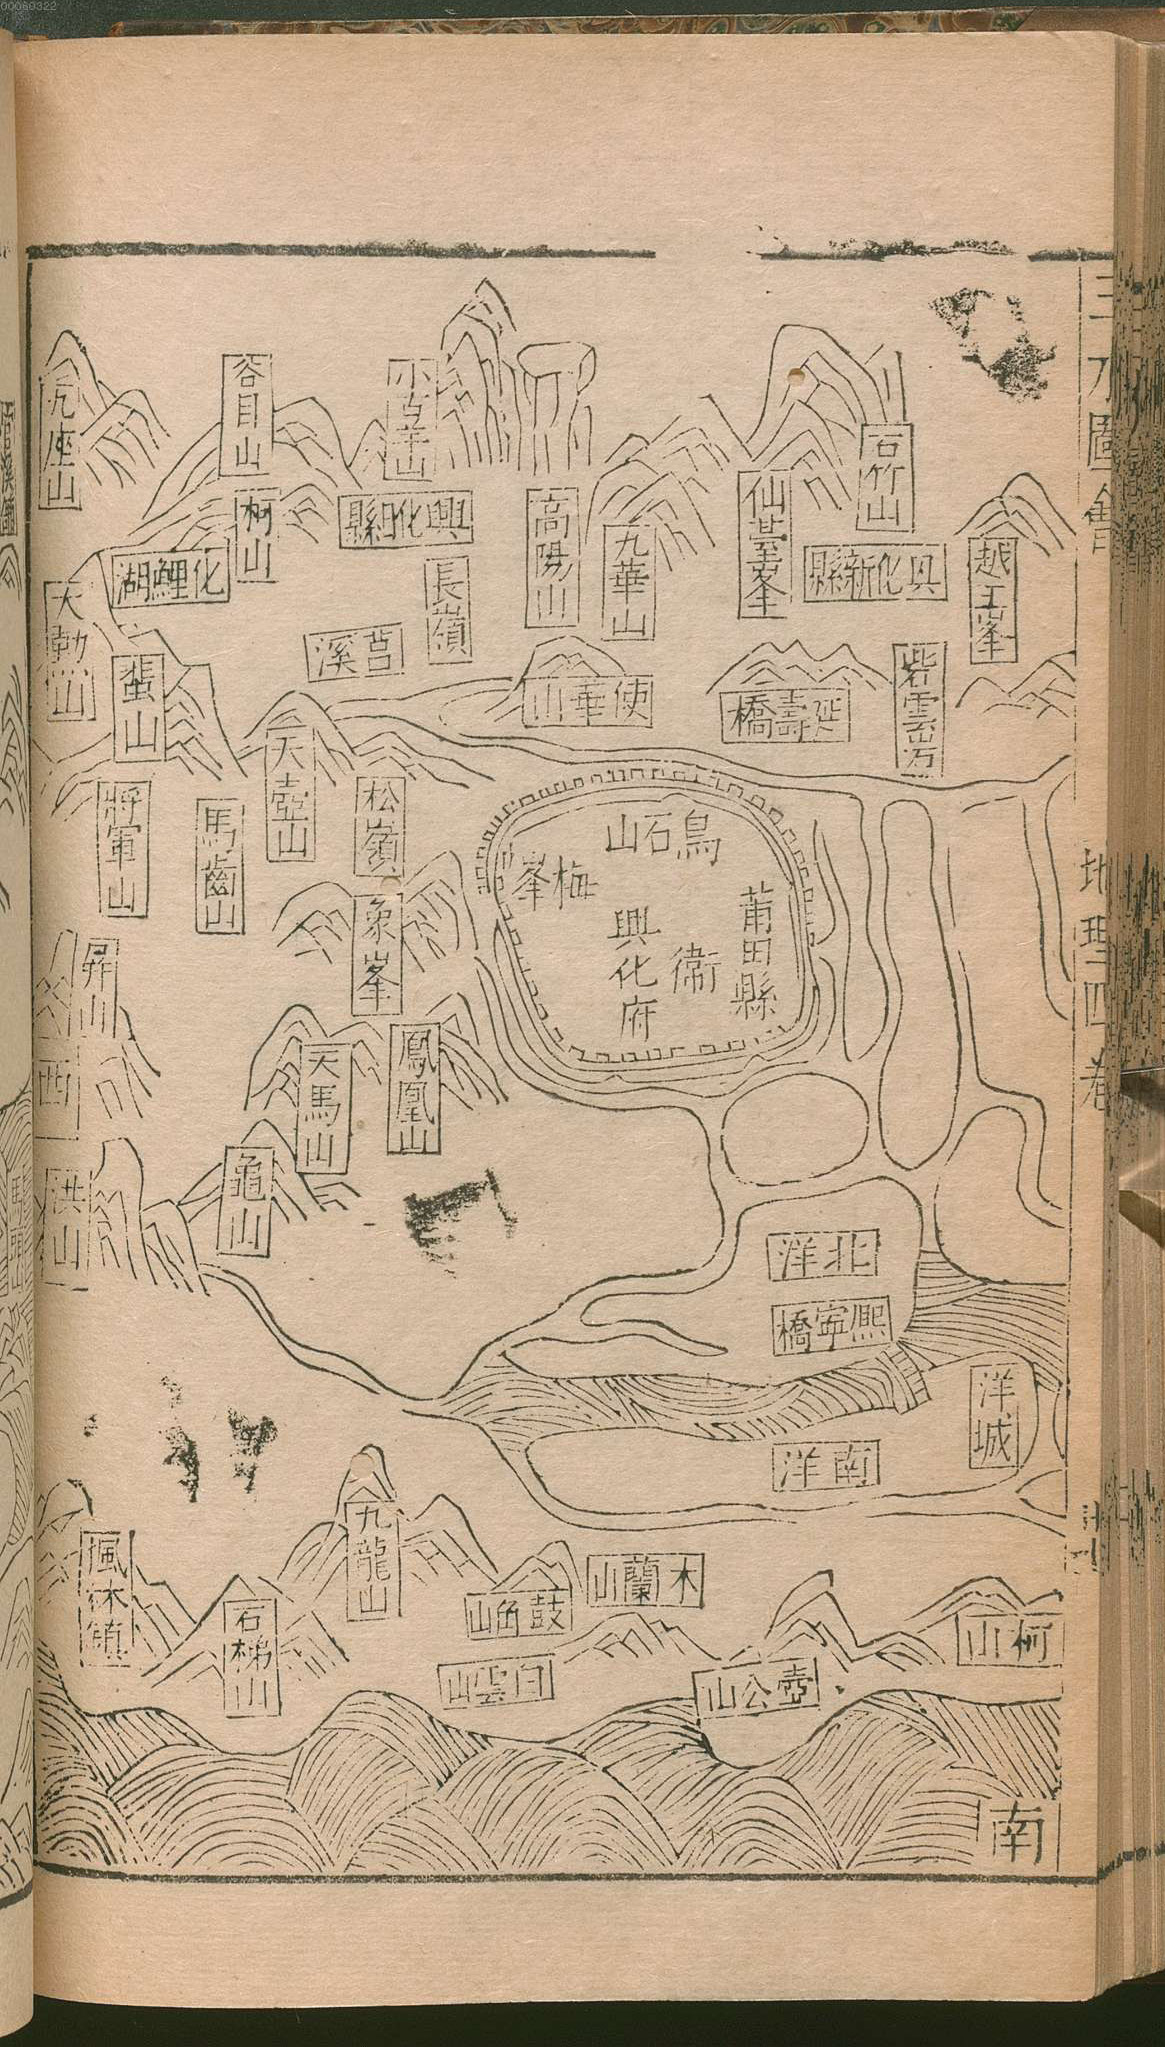 00060322
三才圖會
地理四卷
石竹山
仙臺峯
興化新縣
越王峯
九華山
高陽山
興化縣
谷目山
柯山
化鯉湖
九座山
長嶺
莒溪
使華山
延壽橋
紫雲岩
大勲山
蜚山
天壺山
松嶺
馬齒山
將軍山
烏石山
梅峯
莆田縣
衞
興化府
象峯
鳳凰山
天馬山
昇山
西
龜山
洪山
北洋
熈寧橋
洋城
南洋
九龍山
木蘭山
鼓角山
風林鎮
石梯山
白雲山
壺公山
柯山
南